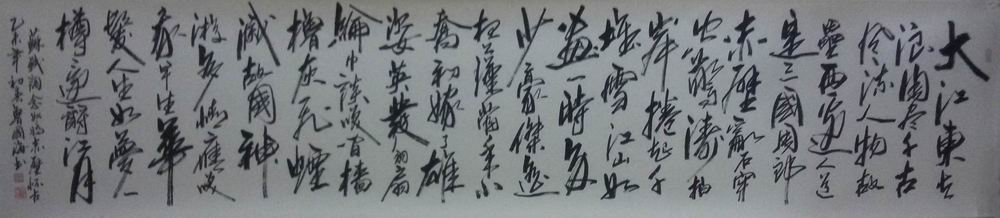 大江東去
浪淘尽千古
風流人物故
壘西邊人道
是三國周郎
赤壁亂石穿
空驚濤拍
岸捲起千
堆雪江山如
畫一時多
少豪傑遙
想公瑾當年小
喬初嫁了雄
姿英發羽扇
綸巾談笑間檣
櫓灰飛煙
滅故國神
游多情應笑
我早生華
髮人生如夢一
樽還酹江月
蘇軾詞念奴嬌赤壁懷古
乙未年初春國海書